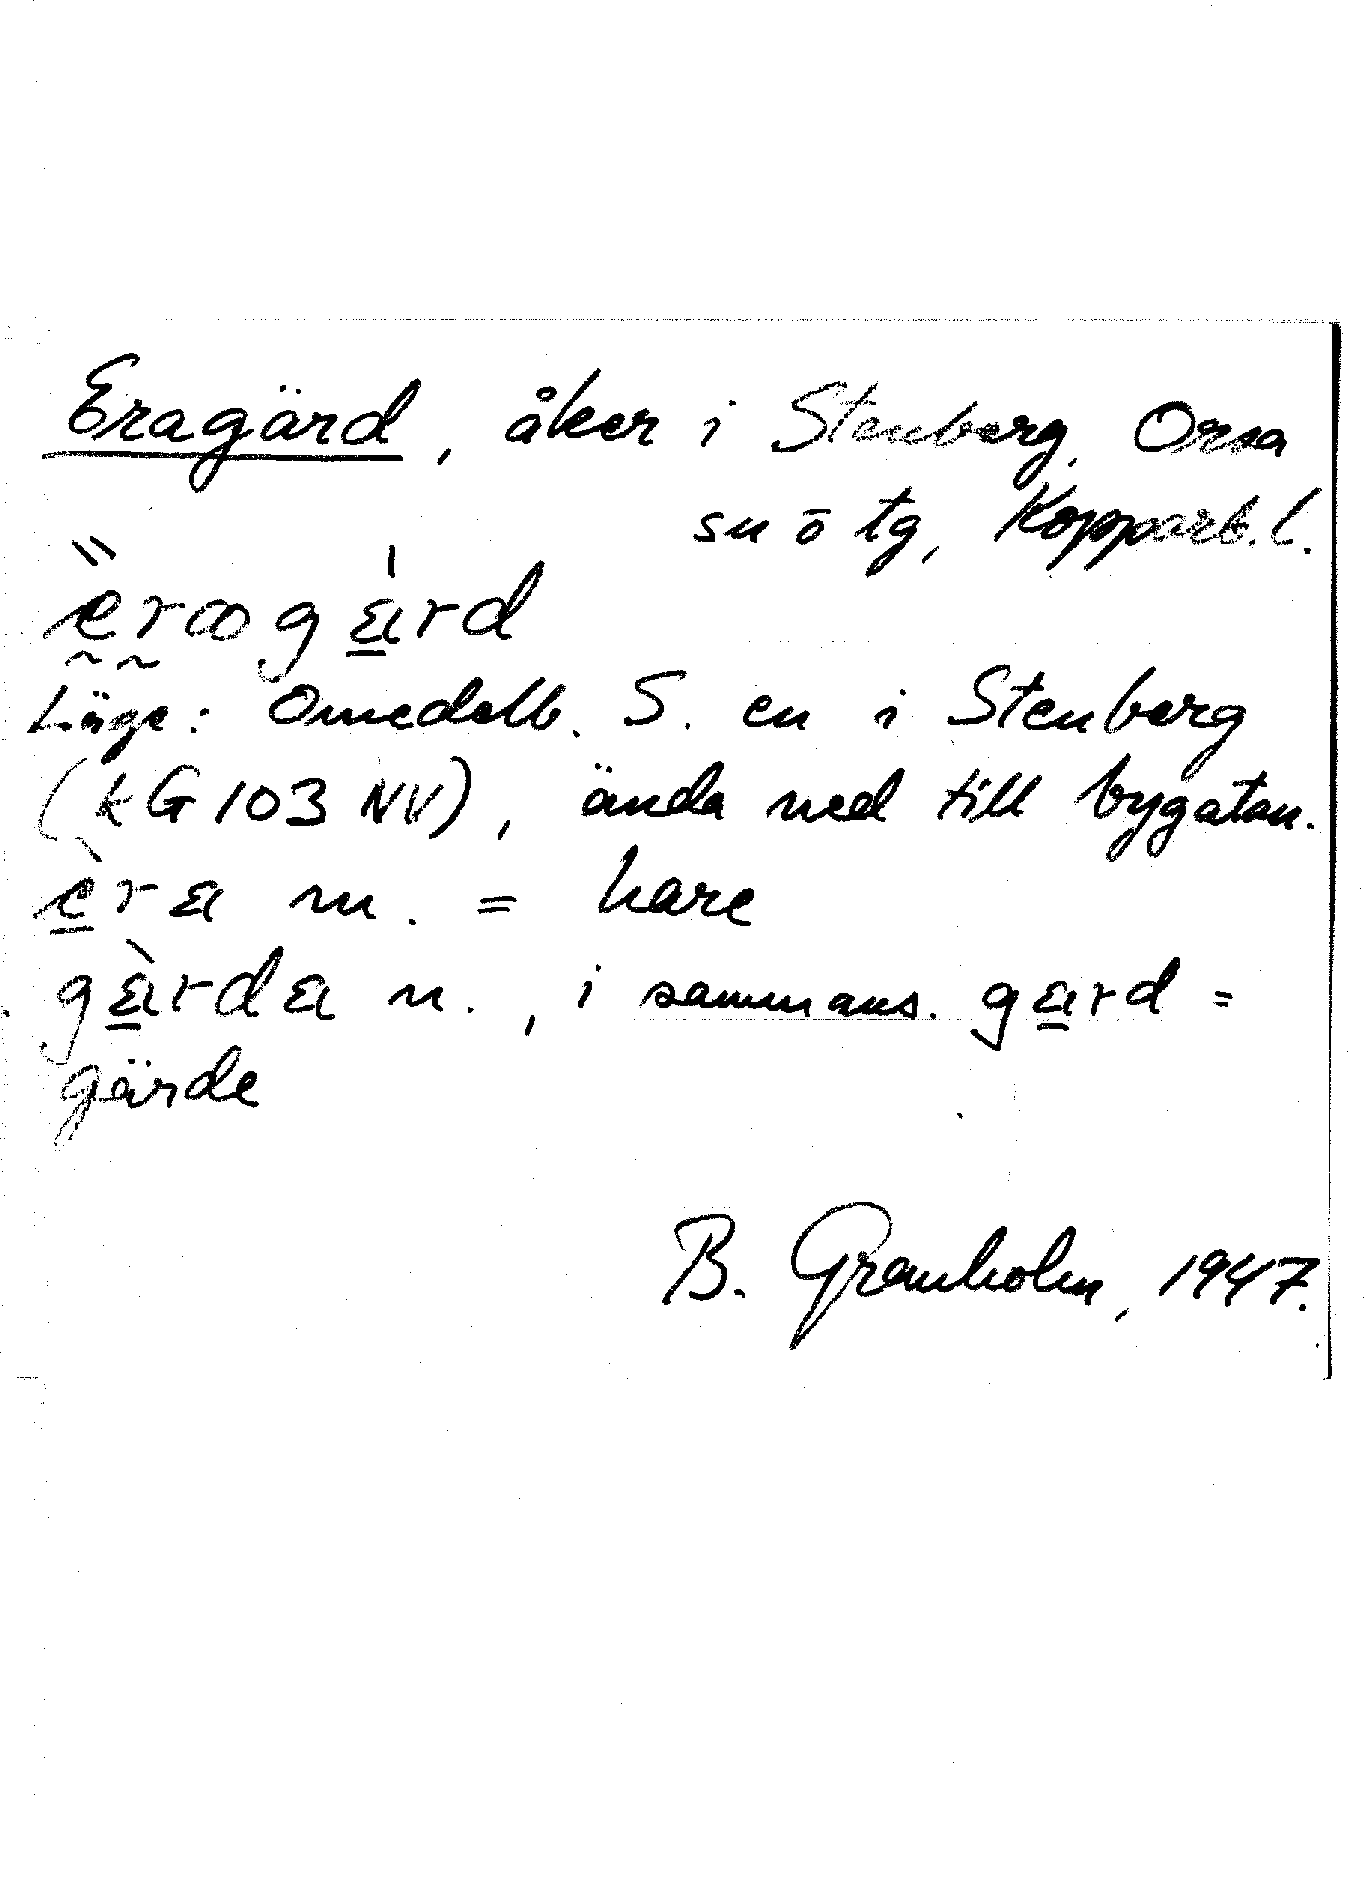 Eragärd, åker i Stenberg, Orsa
sn o tg, Kopparb. l.
Läge: Omedelb. S. en i Stenberg
(kG 103 NV), ända ned till bygatan.
èra m. = hare
gàrda n., i sammans. gard =
gärde
B. Granholm, 1947.